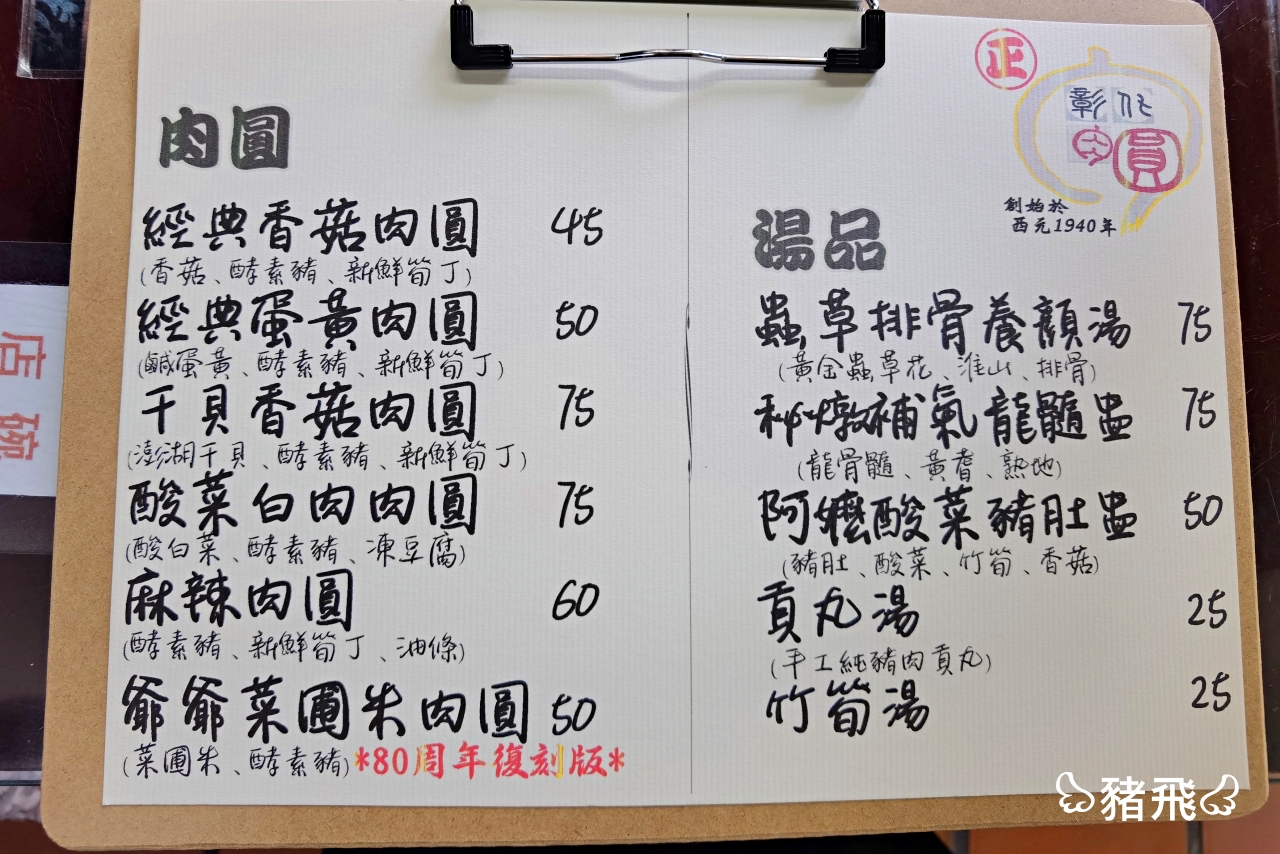 肉圓
經典香菇肉圓 45
(香菇、酵素豬、新鮮筍丁)
經典蛋黃肉圓 50
(鹹蛋黃、酵素豬、新鮮筍丁)
干貝香菇肉圓 75
(澎湖干貝、酵素豬、新鮮筍丁)
酸菜白肉肉圓 75
(酸白菜、酵素豬、凍豆腐)
麻辣肉圓 60
(酵素豬、新鮮筍丁、油條)
爺爺菜圃米肉圓 50
(菜圃米、酵素豬)*80周年復刻版*
正
彰化
肉圓
創始於
西元1940年
湯品
蟲草排骨養顏湯 75
(黃金蟲草花、淮山、排骨)
秘燉補氣龍髓盅 75
(龍骨髓、黃耆、熟地)
阿嬤酸菜豬肚盅 50
(豬肚、酸菜、竹筍、香菇)
貢丸湯 25
(手工純豬肉貢丸)
竹筍湯 25
店碗
豬飛